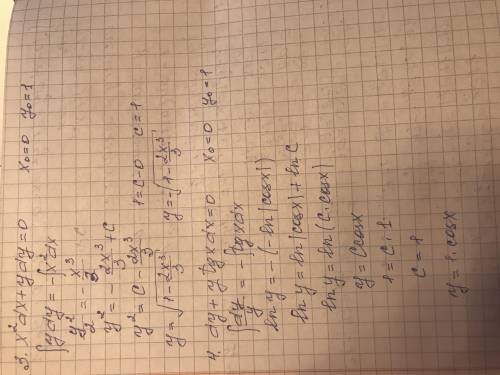 3. x²dx+ydy=0 x₀=0 y₀=1
∫ydy=-∫x²dx
y²/2=-x³/3
y²=-2x³/3+C
y²=C-2x³/3 1=C-0 C=1
y=√(1-2x³/3) y=-√(1-2x³/3)
4. dy+ytgxdx=0 x₀=0 y₀=1
∫dy/y=-∫tgxdx
ln y=-(-ln|cosx|)
ln y=ln|cosx|+lnC
ln y=ln(C·cosx)
y=Ccosx
1=C·1
C=1
y=1·cosx